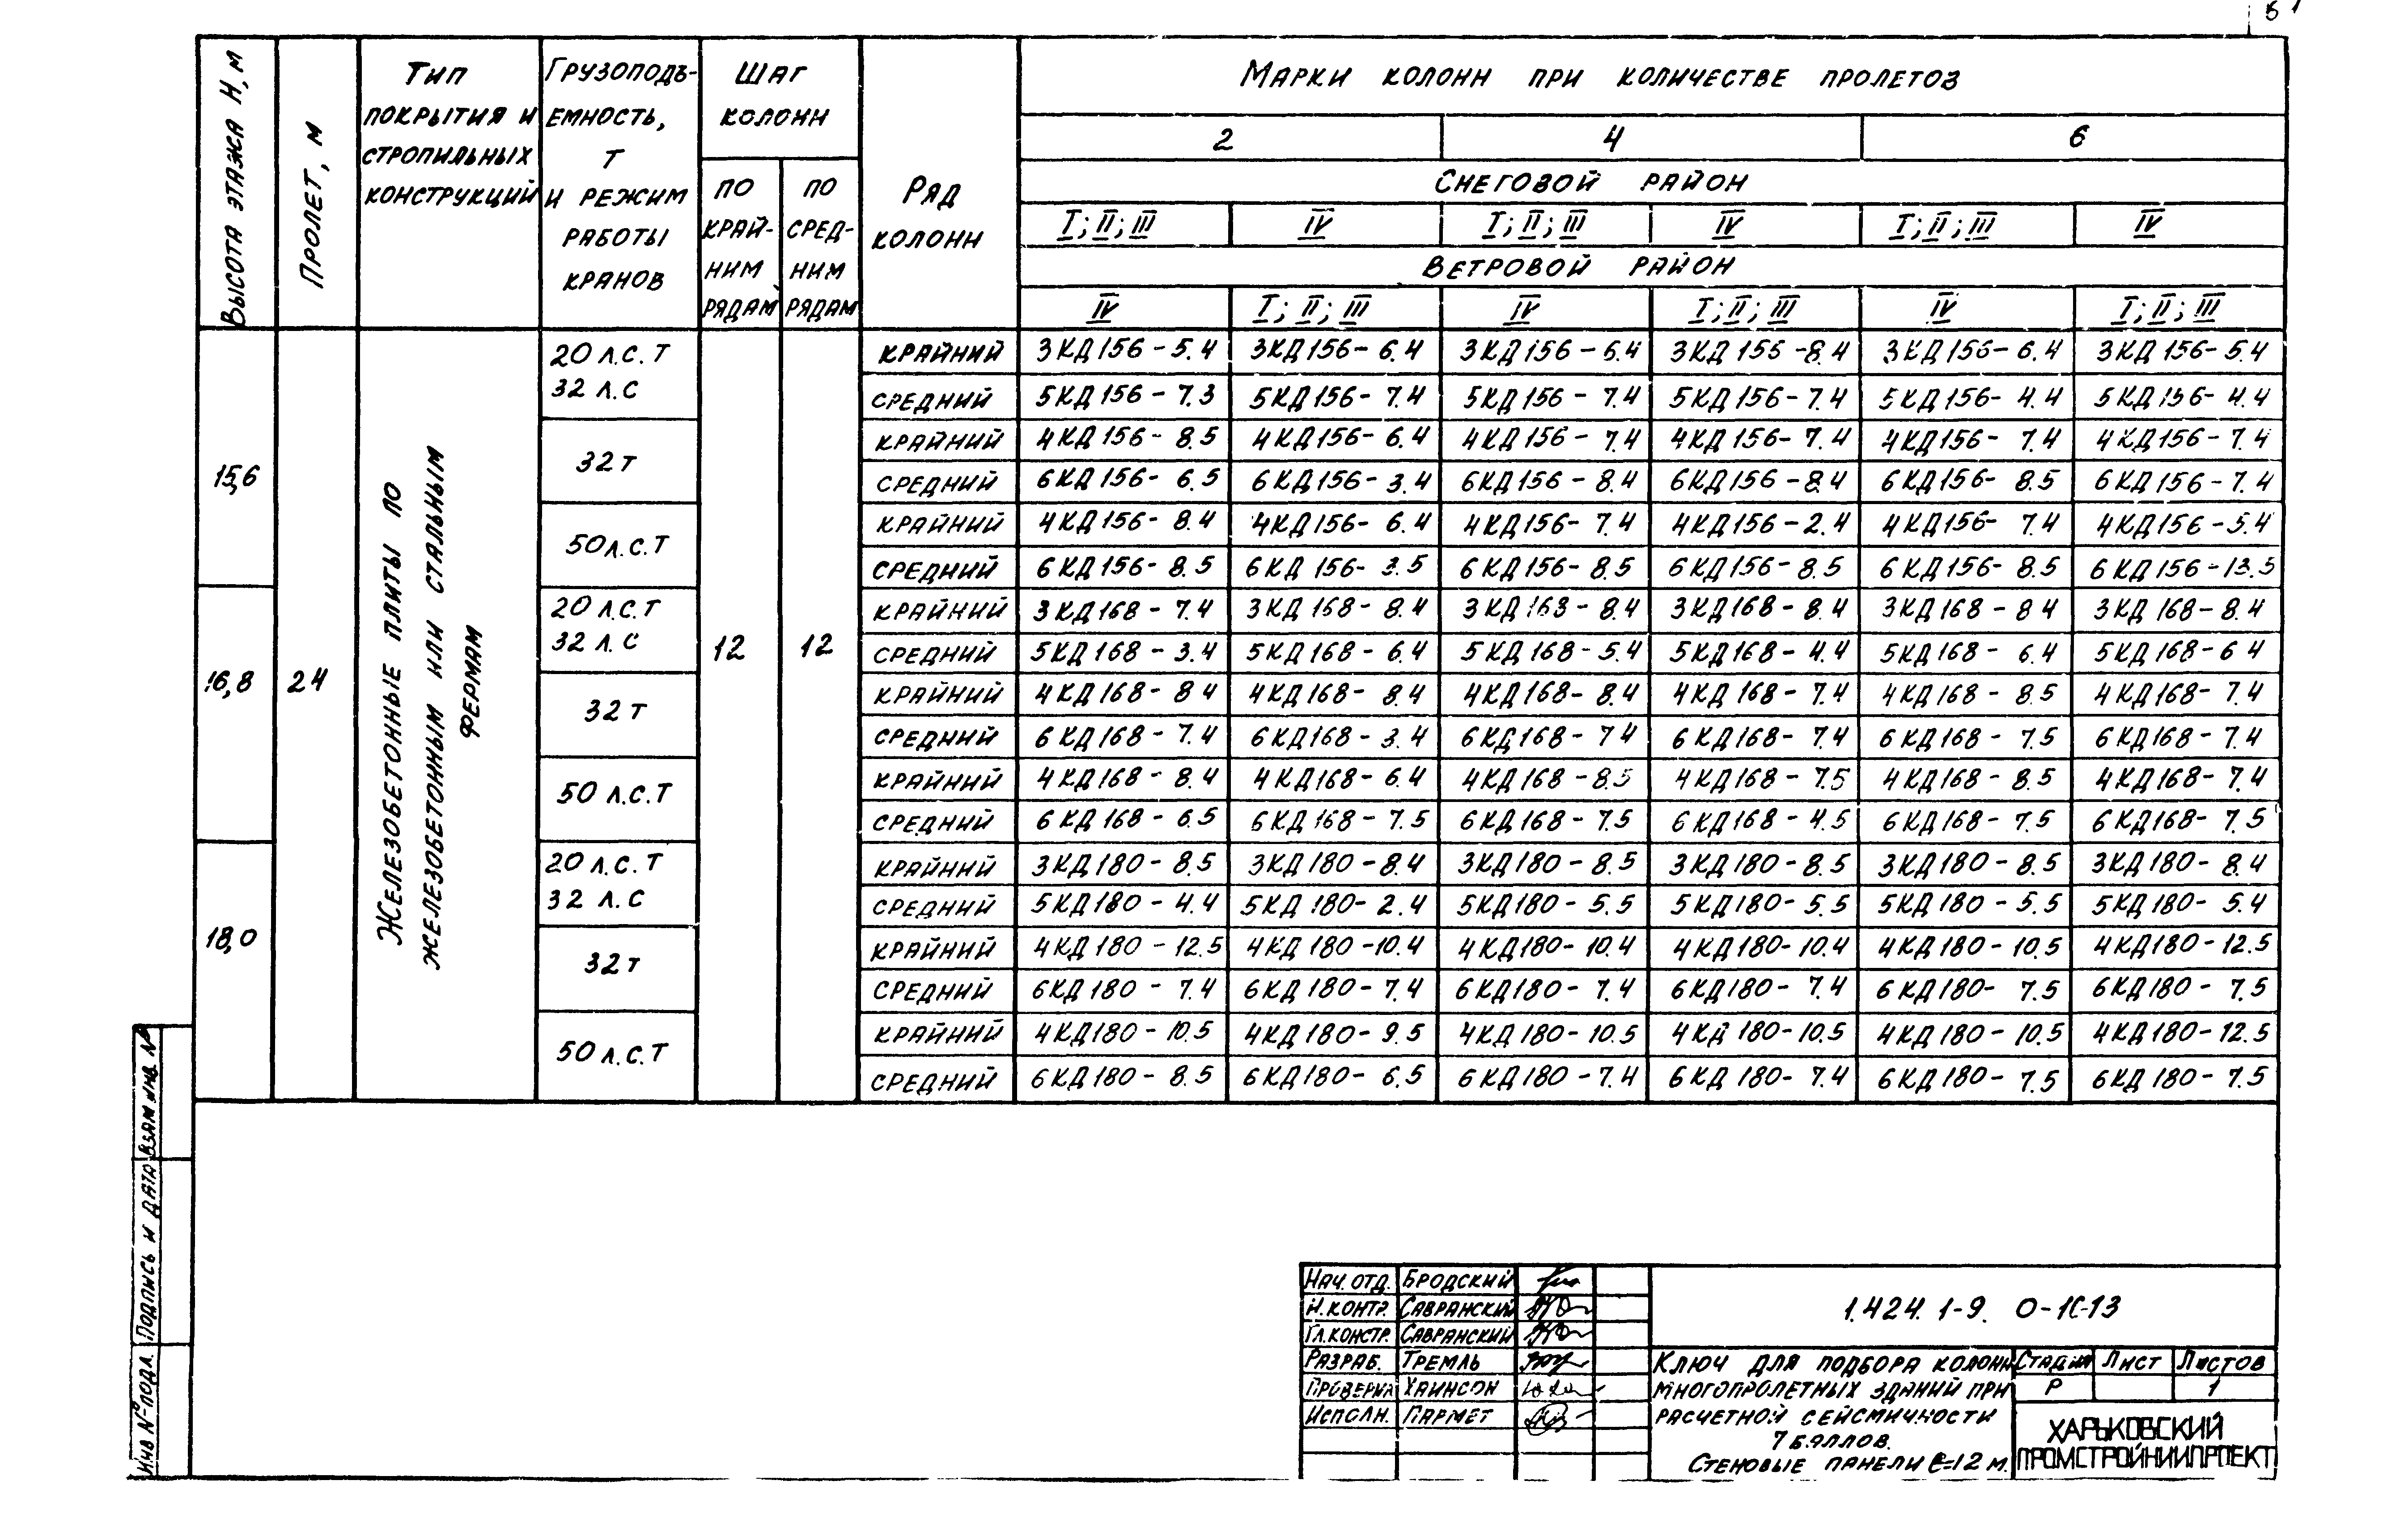 Высота этажа Н, м
Пролет, м
Тип покрытия и стропильных конструкций
Грузоподъ-
емность,
т
и режим
работы
кранов
Шаг
колонн
по край-
ним
рядам
по сред-
ним
рядам
Ряд
колонн
Марки колонн при количестве пролетов
2 4 6
Снеговой район
I; II; III IV I; II; III IV I; II; III IV
Ветровой район
IV I; II; III IV I; II; III IV I; II; III
15,6
16,8
18,0
24
Железобетонные плиты по
железобетонным или стальным
фермам
12 12
20 л.с.т
32 л.с
крайний 3КД156-5.4 3КД156-6.4 3КД156-6.4 3КД156-8.4 3КД156-6.4 3КД156-5.4
средний 5КД156-7.3 5КД156-7.4 5КД156-7.4 5КД156-7.4 5КД156-4.4 5КД156-4.4
32т
крайний 4КД156-8.5 4КД156-6.4 4КД156-7.4 4КД156-7.4 4КД156-7.4 4КД156-7.4
средний 6КД156-6.5 6КД156-3.4 6КД156-8.4 6КД156-8.4 6КД156-8.5 6КД156-7.4
50 л.с.т
крайний 4КД156-8.4 4КД156-6.4 4КД156-7.4 4КД156-2.4 4КД156-7.4 4КД156-5.4
средний 6КД156-8.5 6КД156-3.5 6КД156-8.5 6КД156-8.5 6КД156-8.5 6КД156-13.5
20 л.с.т
32 л.с
крайний 3КД168-7.4 3КД168-8.4 3КД168-8.4 3КД168-8.4 3КД168-8 4 3КД168-8.4
средний 5КД168-3.4 5КД168-6.4 5КД168-5.4 5КД168-4.4 5КД168-6.4 5КД168-6 4
32 т
крайний 4КД168-8 4 4КД168-8.4 4КД168-8.4 4КД168-7.4 4КД168-8.5 4КД168-7.4
средний 6КД168-7.4 6КД168-3.4 6КД168-7 4 6КД168-7.4 6КД168-7.5 6КД168-7.4
50 л.с.т
крайний 4КД168-8.4 4КД168-6.4 4КД168-8.5 4КД168-7.5 4КД168-8.5 4КД168-7.4
средний 6КД168-6.5 6КД168-7.5 6КД168-7.5 6КД168-4.5 6КД168-7.5 6КД168-7.5
20 л.с.т
32 л.с
крайний 3КД180-8.5 3КД180-8.4 3КД180-8.5 3КД180-8.5 3КД180-8.5 3КД180-8.4
средний 5КД180-4.4 5КД180-2.4 5КД180-5.5 5КД180-5.5 5КД180-5.5 5КД180-5.4
32т
крайний 4КД180-12.5 4КД180-10.4 4КД180-10.4 4КД180-10.4 4КД180-10.5 4КД180-12.5
средний 6КД180-7.4 6КД180-7.4 6КД180-7.4 6КД180-7.4 6КД180-7.5 6КД180-7.5
50 л.с.т
крайний 4КД180-10.5 4КД180-9.5 4КД180-10.5 4КД180-10.5 4КД180-10.5 4КД180-12.5
средний 6КД180-8.5 6КД180-6.5 6КД180-7.4 6КД180-7.4 6КД180-7.5 6КД180-7.5
Взам инв. №
Подпись и дата
Инв № подл.
Нач. отд. Бродский
Н. контр. Савранский
Гл. констр. Савранский
Разраб. Тремль
Проверил Хаинсон
Исполн. Пармет
1.424.1-9. 0-1С-13
Ключ для подбора колонн
многопролетных зданий при
расчетной сейсмичности
7 баллов.
Стеновые панели ℓ=12 м.
Стадия Лист Листов
Р 1
ХАРЬКОВСКИЙ
ПРОМСТРОЙНИИПРОЕКТ